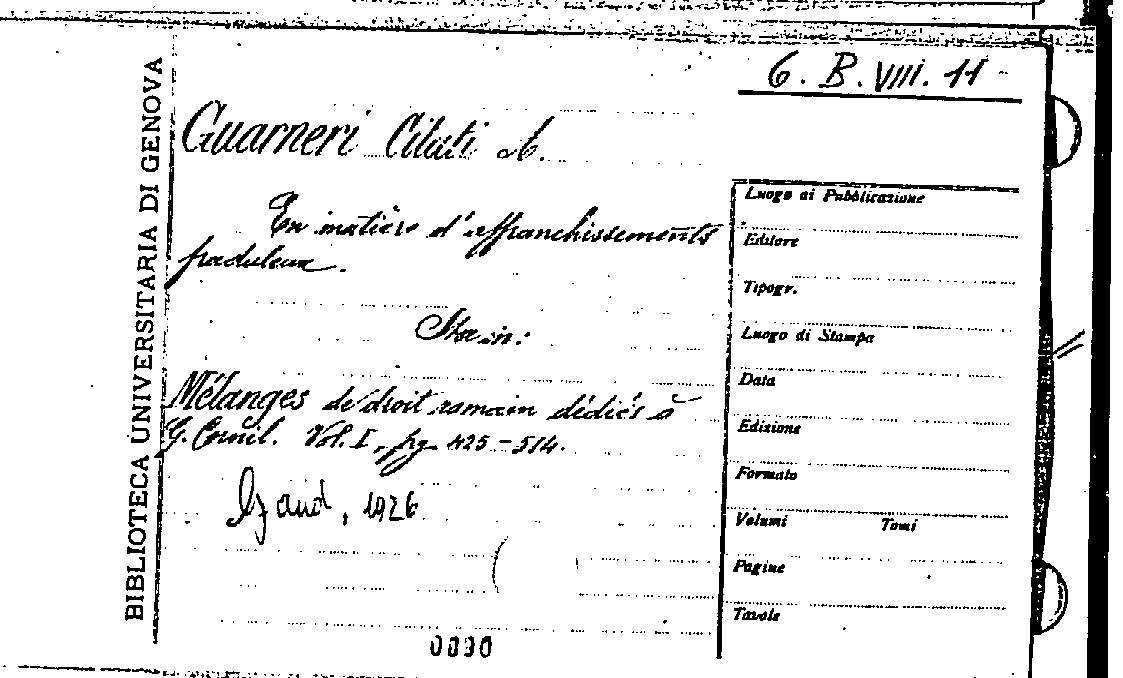 6. B. VIII. 11
BIBLIOTECA UNIVERSITARIA DI GENOVA
Guarneri Citati A.
En matière d'affranchissements
fraduleux.
Sta in:
Mélanges de droit romain dédiés à
G. Cornil. Vol. I, pg. 425-514.
Gand, 1926
Luogo di Pubblicazione
Editore
Tipogr.
Luogo di Stampa
Data
Edizione
Formato
Volumi Tomi
Pagine
Tavole
0030